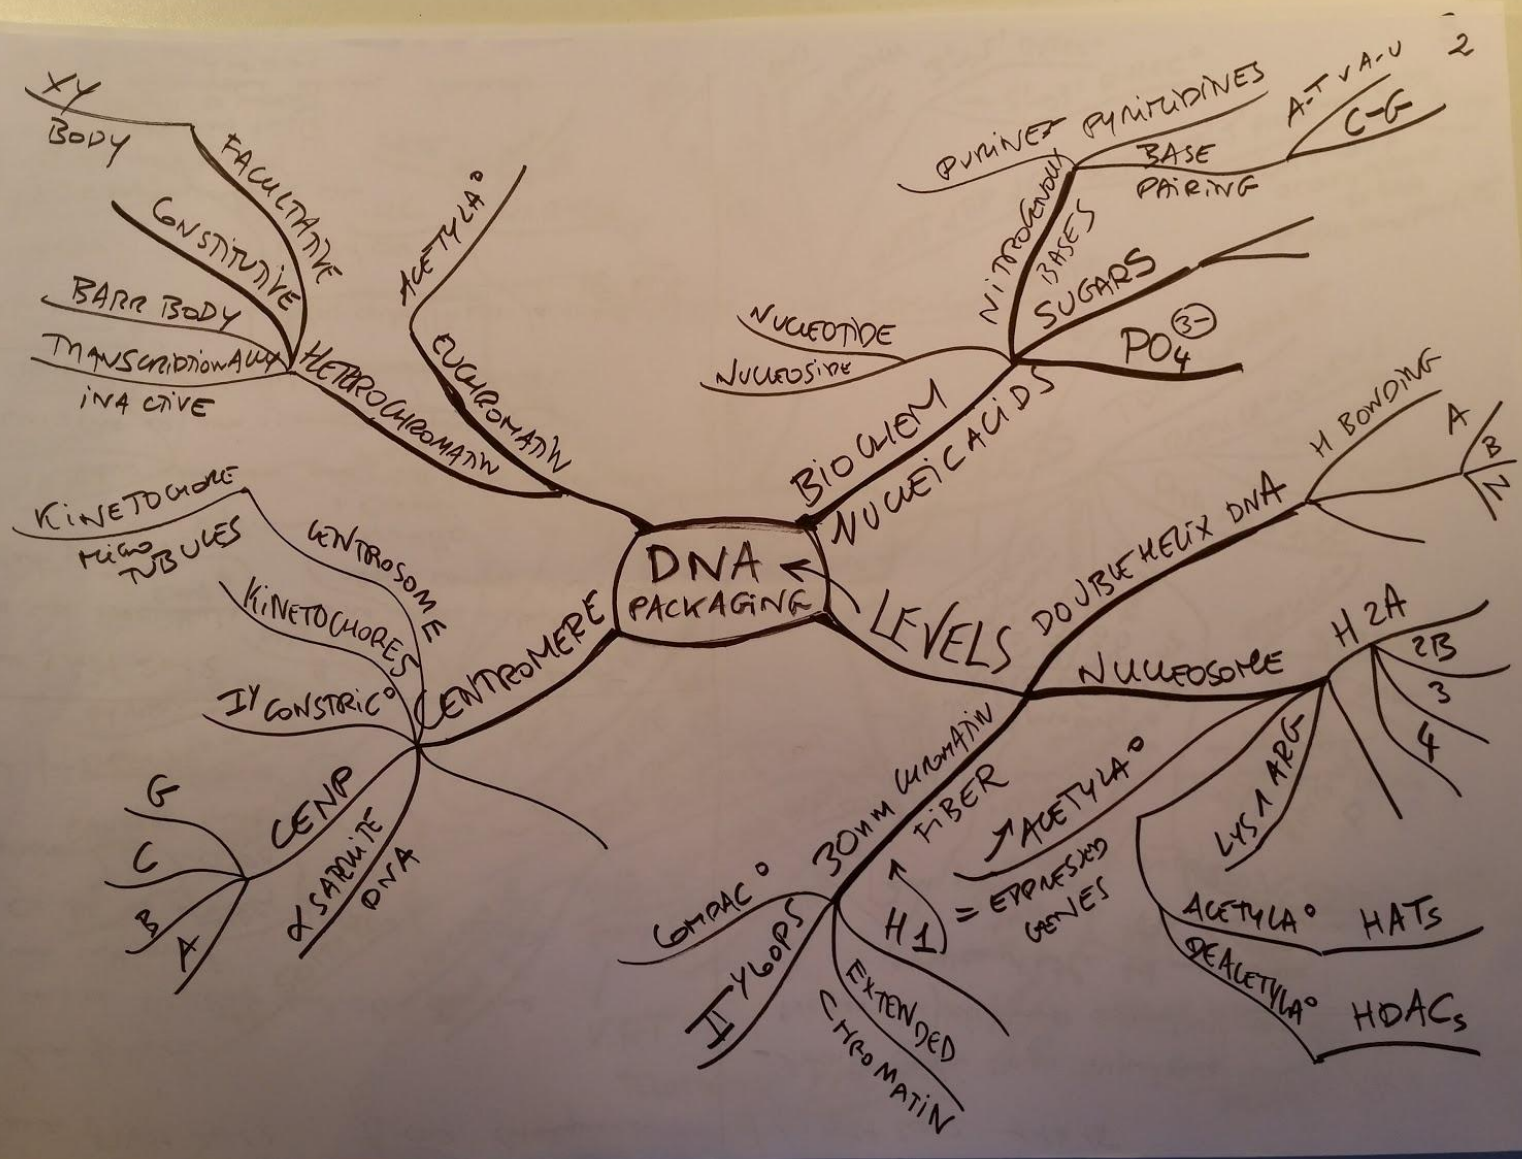 2
DNA
PACKAGING
BIOCHEM
NUCLEIC ACIDS
NUCLEOTIDE
NUCLEOSIDE
NITROGENOUS
BASES
PURINES
PYRIMIDINES
BASE
PAIRING
A-T V A-U
C-G
SUGARS
PO4 3-
LEVELS
DOUBLE HELIX DNA
H BONDING
A
B
Z
NUCLEOSOME
H2A
2B
3
4
LYS 1 ARG
↗ ACETYLA°
= EXPRESSED
GENES
ACETYLA° HATs
DEACETYLA° HDACs
30nm CHROMATIN
FIBER
H1
EXTENDED
CHROMATIN
COMPAC°
CENTROMERE
CENTROSOME
KINETOCHORE
MICRO
TUBULES
KINETOCHORES
IY CONSTRIC°
CENP
G
C
B
A
α SATELLITE
DNA
EUCHROMATIN
ACETYLA°
HETEROCHROMATIN
FACULTATIVE
XY
BODY
CONSTITUTIVE
BARR BODY
TRANSCRIPTIONALLY
INACTIVE